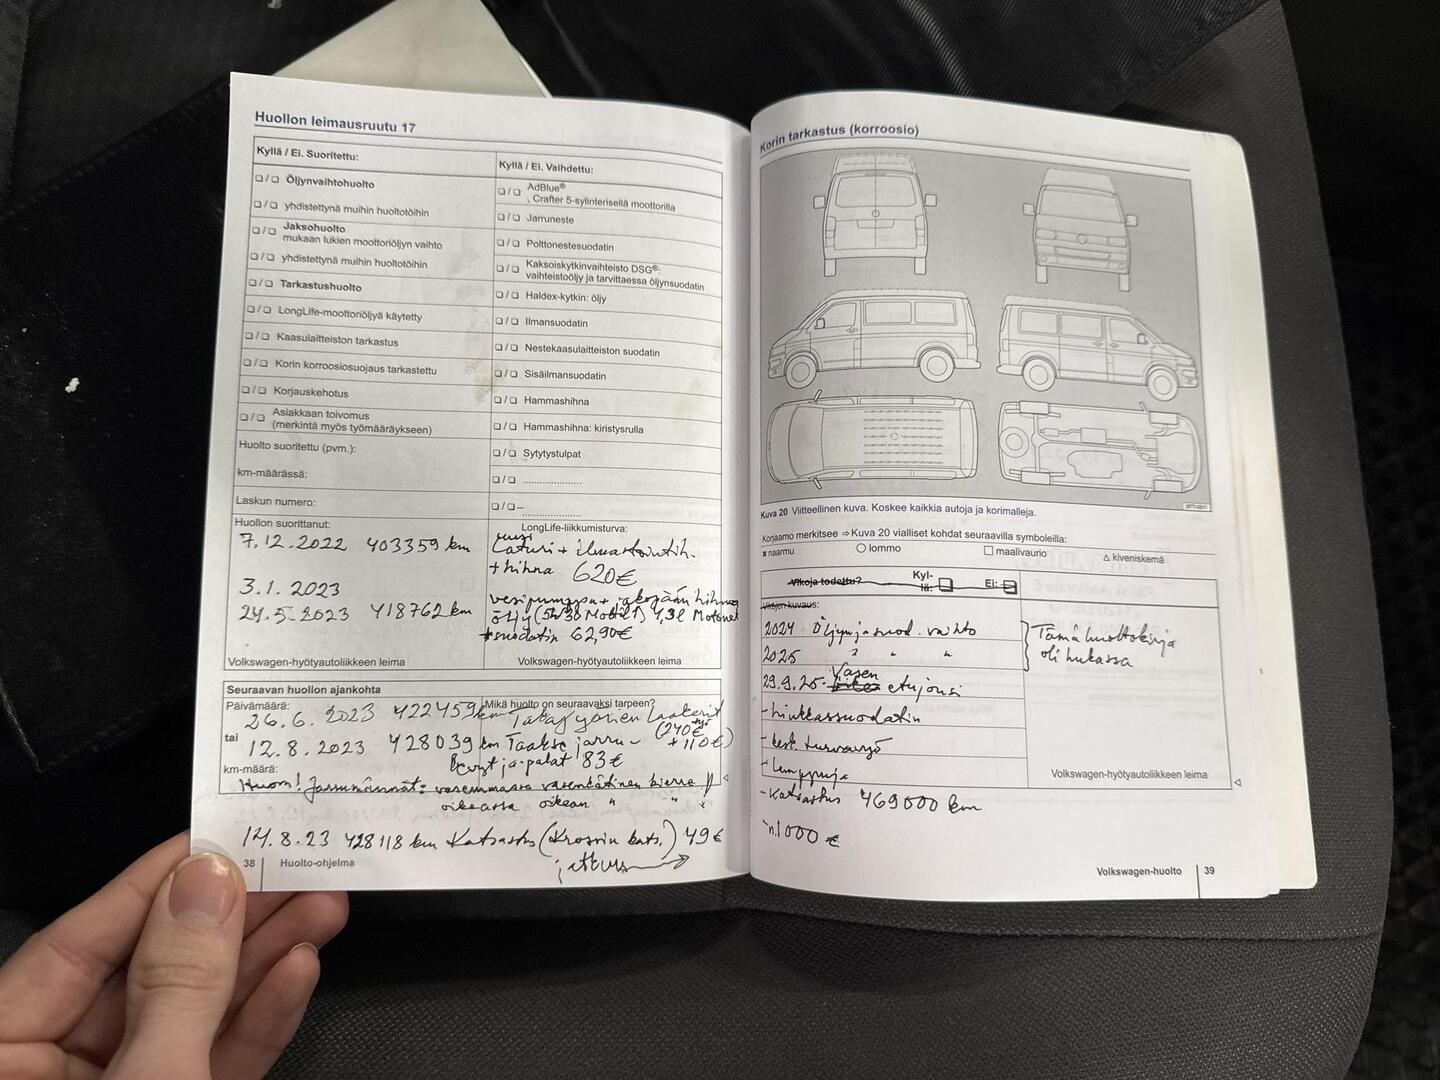 Huollon leimausruutu 17
Kyllä / Ei. Suoritettu:
❏ / ❏ Öljynvaihtohuolto
❏ / ❏ yhdistettynä muihin huoltotöihin
❏ / ❏ Jaksohuolto
mukaan lukien moottoriöljyn vaihto
❏ / ❏ yhdistettynä muihin huoltotöihin
❏ / ❏ Tarkastushuolto
❏ / ❏ LongLife-moottoriöljyä käytetty
❏ / ❏ Kaasulaitteiston tarkastus
❏ / ❏ Korin korroosiosuojaus tarkastettu
❏ / ❏ Korjauskehotus
❏ / ❏ Asiakkaan toivomus
(merkintä myös työmääräykseen)
Huolto suoritettu (pvm.):
km-määrässä:
Laskun numero:
Kyllä / Ei. Vaihdettu:
❏ / ❏ AdBlue®
, Crafter 5-sylinterisellä moottorilla
❏ / ❏ Jarruneste
❏ / ❏ Polttonestesuodatin
❏ / ❏ Kaksoiskytkinvaihteisto DSG®:
vaihteistoöljy ja tarvittaessa öljynsuodatin
❏ / ❏ Haldex-kytkin: öljy
❏ / ❏ Ilmansuodatin
❏ / ❏ Nestekaasulaitteiston suodatin
❏ / ❏ Sisäilmansuodatin
❏ / ❏ Hammashihna
❏ / ❏ Hammashihna: kiristysrulla
❏ / ❏ Sytytystulpat
❏ / ❏ ....................
❏ / ❏ – ....................
Huollon suorittanut:
LongLife-liikkumisturva:
uusi
7.12.2022 403359 km Laturi + ilmastointih.
+ hihna 620€
3.1.2023
vesipumppu + jakopään hihna
24.5.2023 418762 km öljy (5W30 Mobil 1) 4,3l Motonet
+suodatin 62,90€
Volkswagen-hyötyautoliikkeen leima
Volkswagen-hyötyautoliikkeen leima
Seuraavan huollon ajankohta
Päivämäärä:
Mikä huolto on seuraavaksi tarpeen?
26.6.2023 422459 km Takapyörien laakerit
(240€ työ + 110€)
tai
12.8.2023 428039 km Taakse jarru-
levyt ja -palat 83€
km-määrä:
Huom! Jarrumännät: vasemmassa vasenkätinen kierre !!
oikeassa oikean " " "
14.8.23 428118 km Katsastus (Krossin kats.) 49€
jatkuu →
38 Huolto-ohjelma
Korin tarkastus (korroosio)
Kuva 20 Viitteellinen kuva. Koskee kaikkia autoja ja korimalleja.
Korjaamo merkitsee ⇒ Kuva 20 vialliset kohdat seuraavilla symboleilla:
x naarmu
○ lommo
□ maalivaurio
△ kiveniskemä
Vikoja todettu?
Kyl-
lä:
Ei:
Vikojen kuvaus:
2024 Öljyn ja suod. vaihto
2025 " " "
Tämä huoltokirja
oli hukassa
Vasen
29.9.25 - etujousi
- hiukkassuodatin
- kesk. turvavyö
- lamppuja
- Katsastus 469000 km
~n.1000 €
Volkswagen-hyötyautoliikkeen leima
Volkswagen-huolto 39